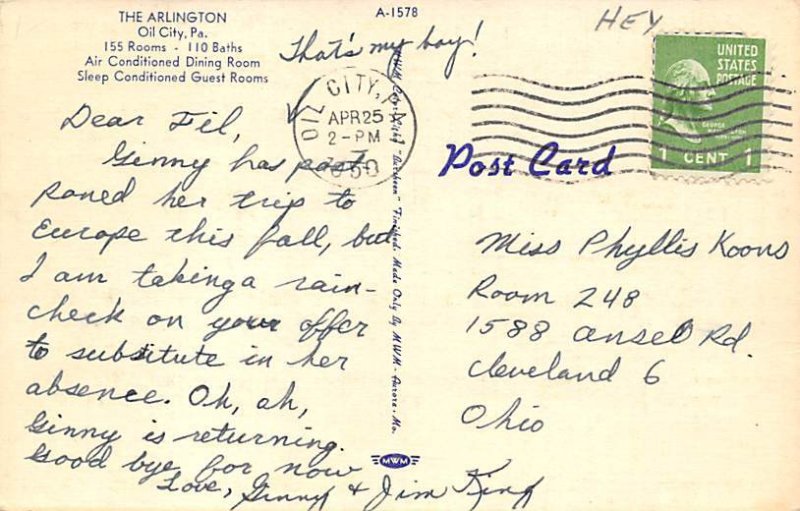 THE ARLINGTON
Oil City, Pa.
155 Rooms - 110 Baths
Air Conditioned Dining Room
Sleep Conditioned Guest Rooms
A-1578
HEY
That's my boy!
OIL CITY, PA.
APR 25
2-PM
1950
UNITED
STATES
POSTAGE
1 CENT 1
Post Card
Dear Fil,
Ginny has post
poned her trip to
Europe this fall, but
I am taking a rain-
check on your offer
to substitute in her
absence. Oh, oh,
Ginny is returning.
Good bye for now
Love, Ginny & Jim King
MWM Color-Litho "Duraheen" Finished. Made Only By MWM - Aurora, Mo.
MWM
Miss Phyllis Koons
Room 248
1588 Ansel Rd.
Cleveland 6
Ohio